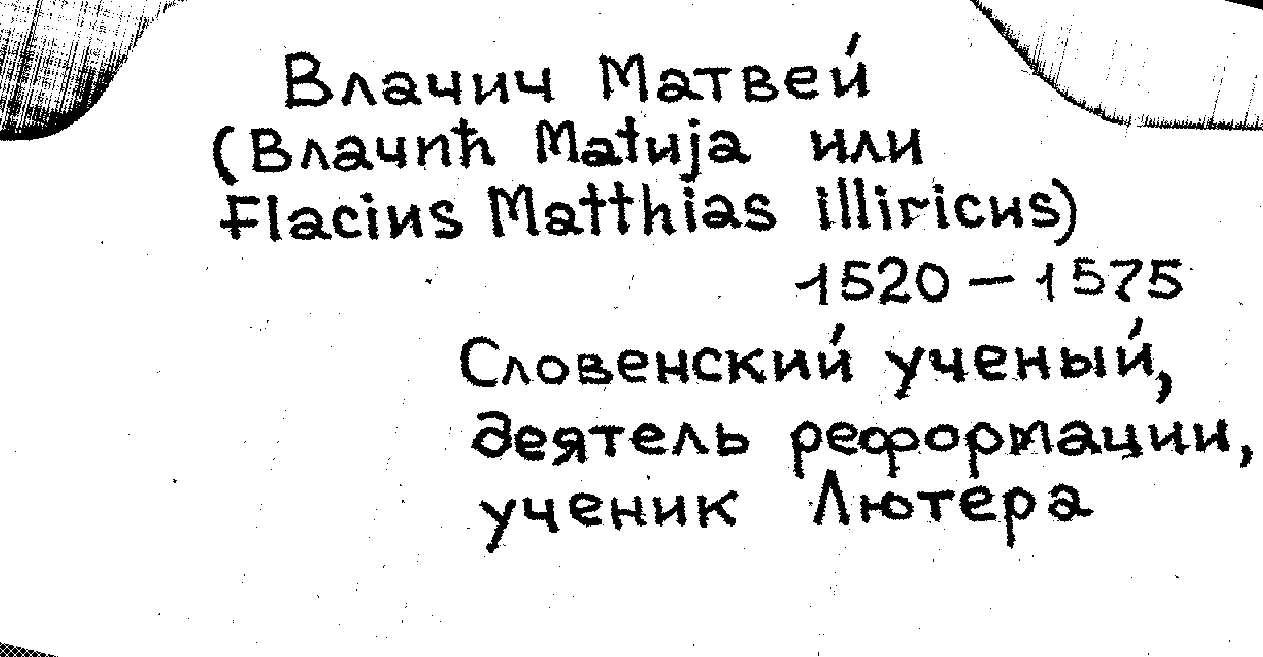 Влачич Матвей
(Влачић Матија или
Flacius Matthias illiricus)
1520 – 1575
Словенский ученый,
деятель реформации,
ученик Лютера